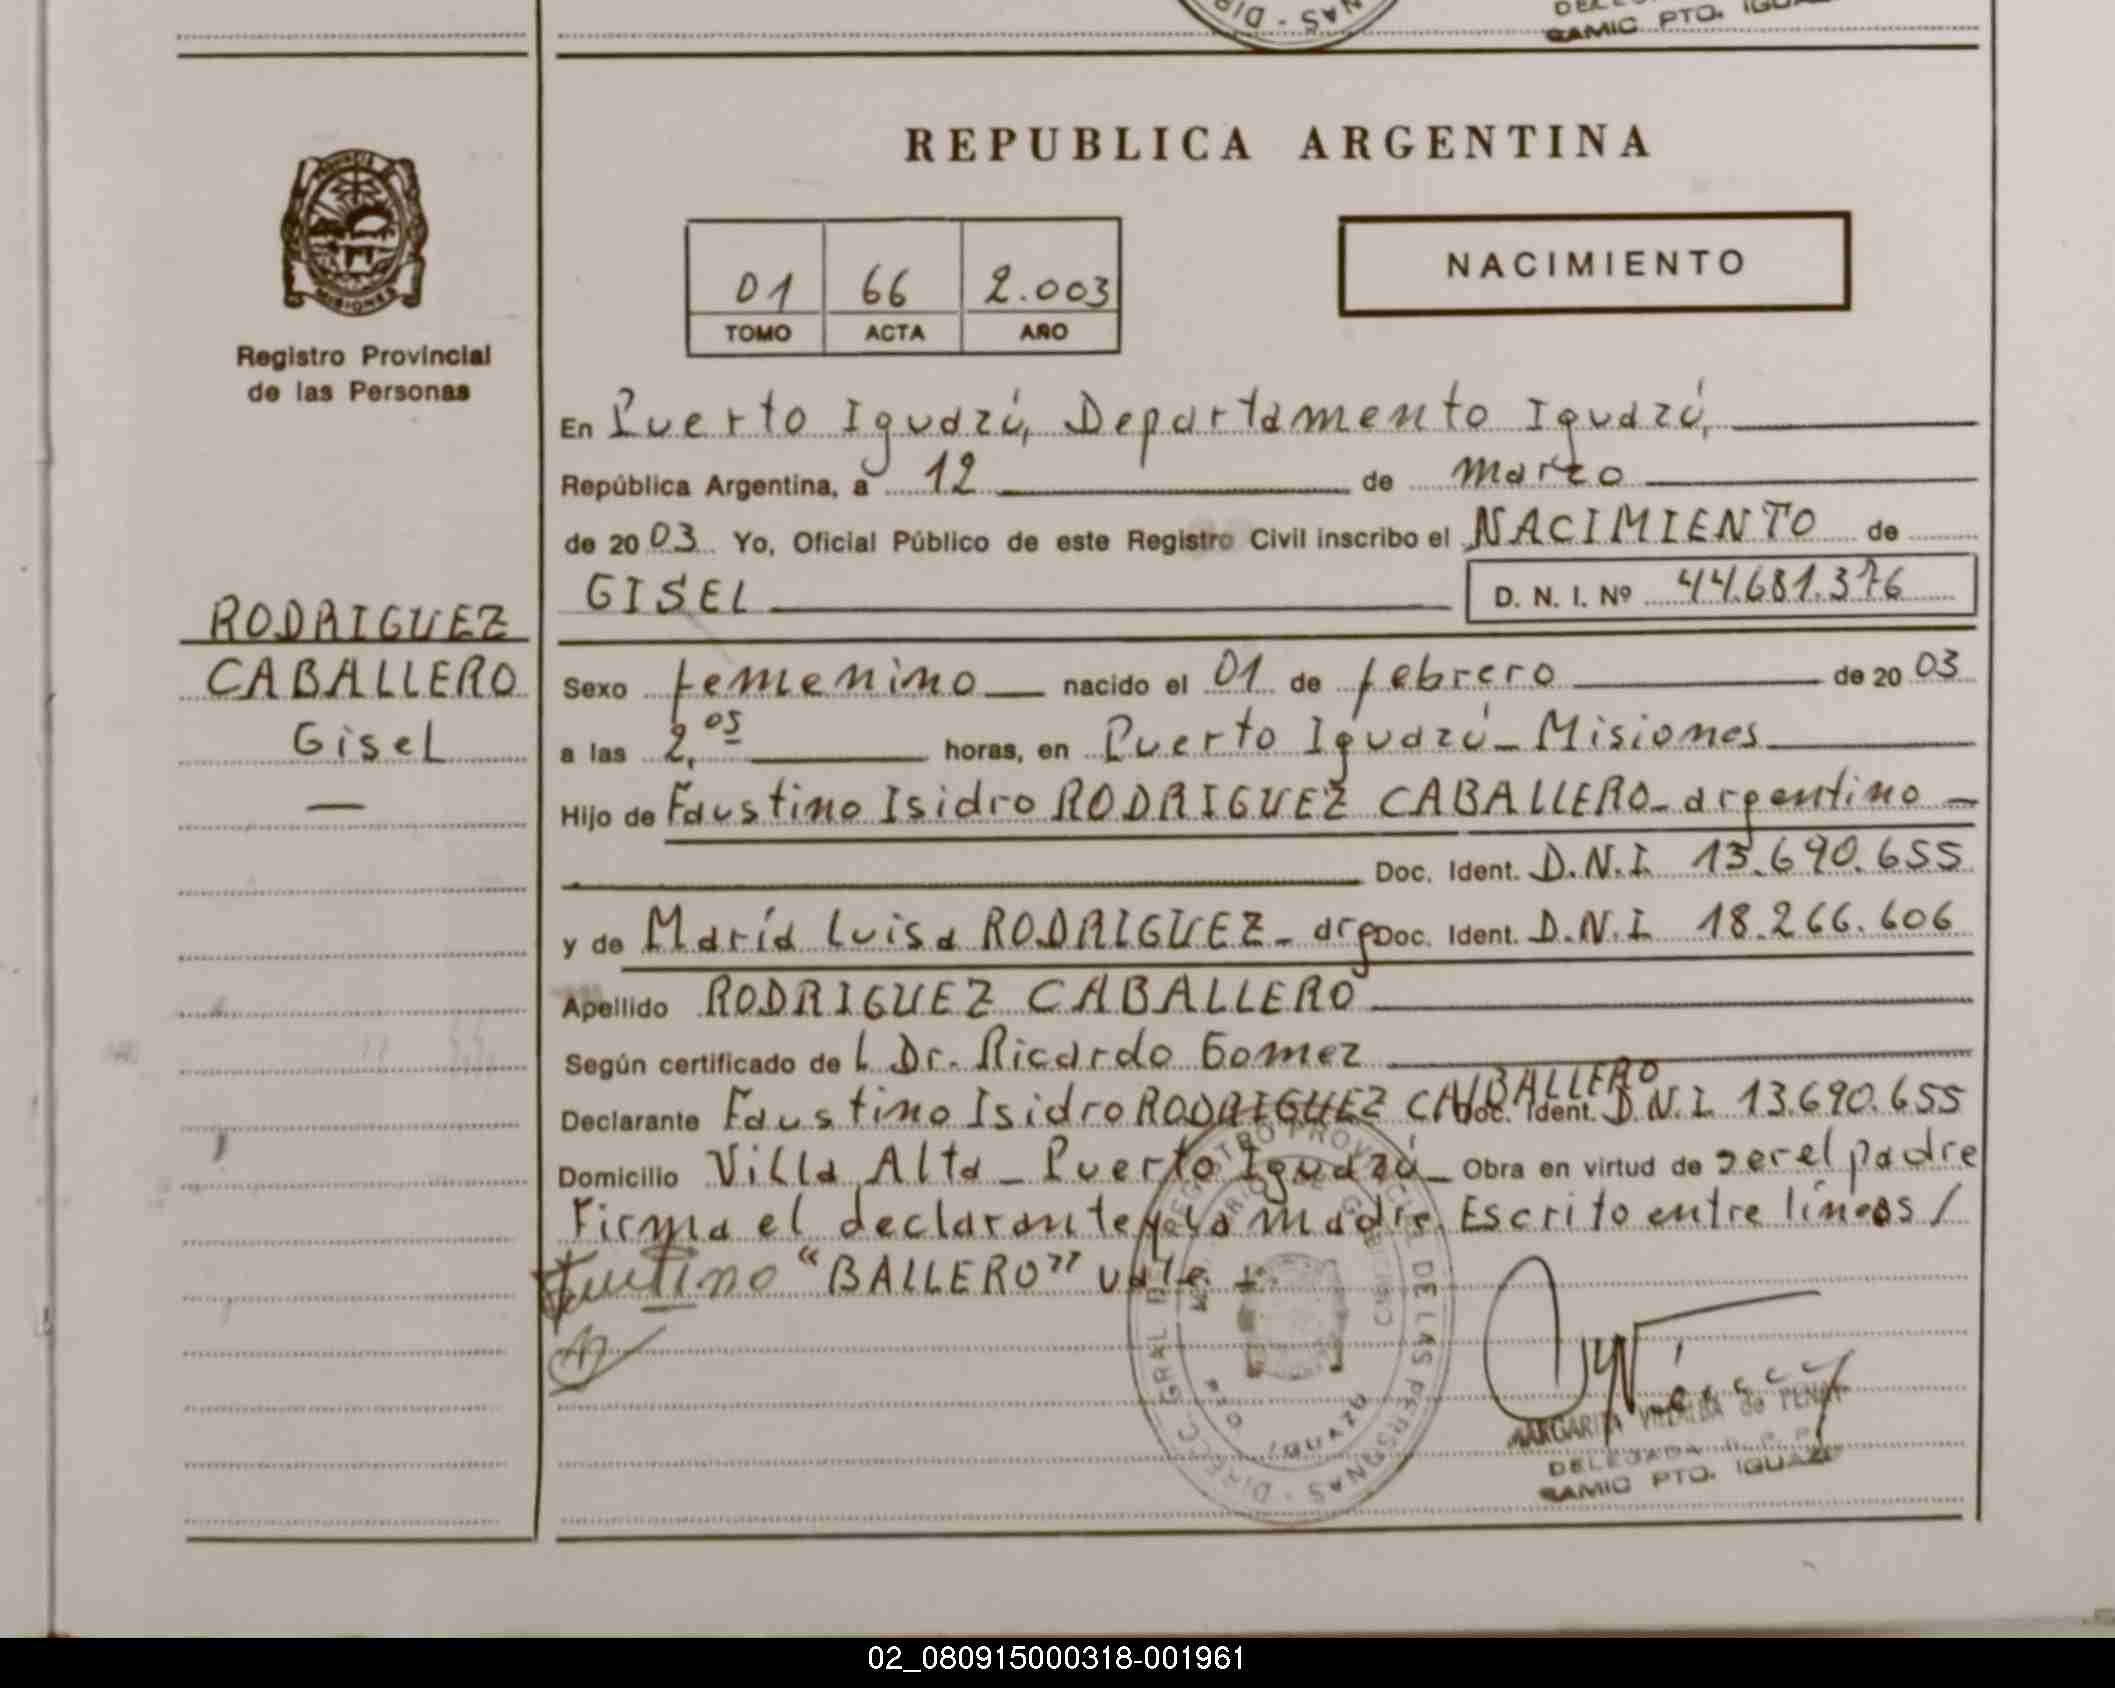 SAMIC PTO.
REPUBLICA ARGENTINA
NACIMIENTO
01 66 2.003
TOMO ACTA AÑO
MISIONES
Registro Provincial
de las Personas
En Puerto Iguazú, Departamento Iguazú,
República Argentina, a 12 de marzo
de 2003 Yo, Oficial Público de este Registro Civil inscribo el NACIMIENTO de
GISEL D. N. I. Nº 44.681.376
RODRIGUEZ
CABALLERO
Gisel
Sexo femenino nacido el 01 de febrero de 2003
a las 2,05 horas, en Puerto Iguazú - Misiones
Hijo de Faustino Isidro RODRIGUEZ CABALLERO - argentino -
Doc. Ident. D.N.I. 13.690.655
y de María Luisa RODRIGUEZ - arg Doc. Ident. D.N.I. 18.266.606
Apellido RODRIGUEZ CABALLERO
Según certificado del Dr. Ricardo Gomez
Declarante Faustino Isidro RODRIGUEZ CABALLERO Doc. Ident. D.N.I. 13.690.655
Domicilio Villa Alta - Puerto Iguazú - Obra en virtud de ser el padre
Firma el declarante y la madre. Escrito entre líneas /
"BALLERO" vale
REGISTRO PROVINCIAL DE LAS PERSONAS - DIRECC. GRAL
IGUAZU
MARGARITA VILLALBA de
DELEGADA R. P. P.
SAMIC PTO. IGUAZU
02_080915000318-001961